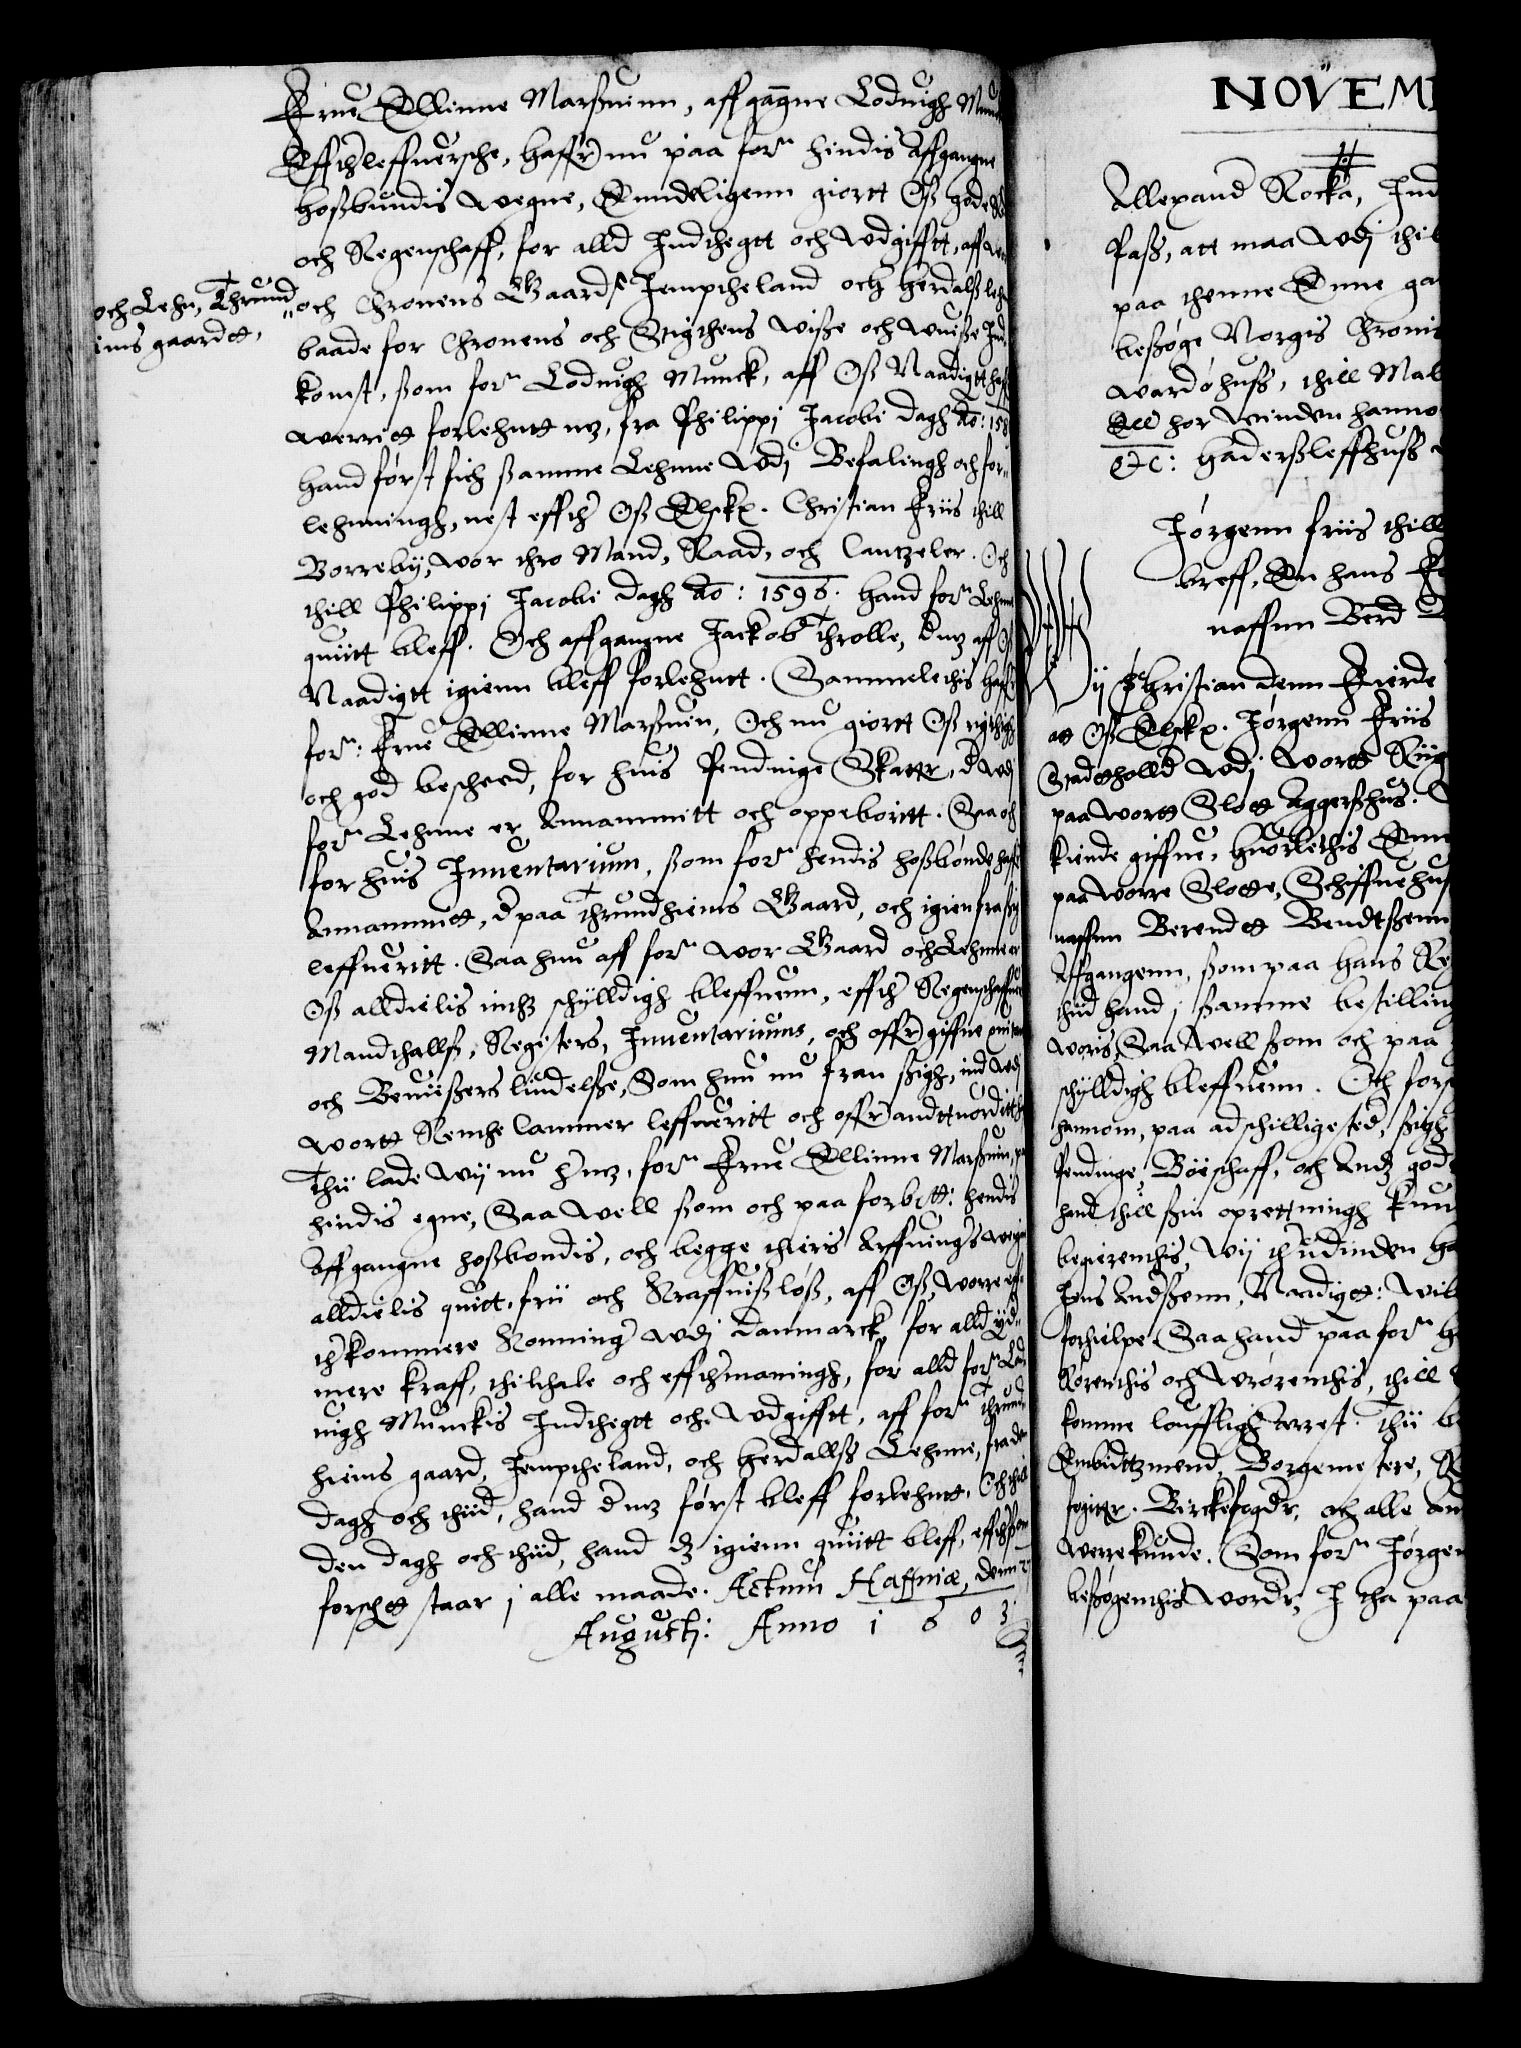 Frue Ellinne Marßuinn, affgagne Loduigh Munck
Effterleffuersche, haffr nu paa forne hindis Affgangne
hoßbundis wegne, Enndeligenn giortt Oß gode Re
och Regenschaff, for alld Indthegtt och Udgifftt, aff wor
och Chronens Gaard, Jempteland och Herdalß lehn
och Lehn, Thrund
iems gaard etc,
baade for Chronens och Stigtens wiße och wuiße Ind
komst, ßom forne Loduigh Munck, aff Oß Naadigt haffr
werritt forlehntt mz, fra Philippi Jacobi dagh Ao: 158
hand først fich ßamme Lehnne Udj Befalingh och for
lehnningh, nest effter Oß Elske. Christian Friis thill
Borreby, wor thro Mand, Raad, och Cantzeler. Och
thill Philippi Jacobi dagh Ao: 1596. hand forne Lehnne
quitt bleff. Och affgangne Jackob Throlle, dmz aff Oß
Naadigtt igienn bleff forlehntt. Sammeledis haffr
forne: Frue Ellinne Marßuin, Och nu giortt Oß rigtigh
och god bescheed, for huis Pendnige Skatter, d Udj
forne Lehnne er Annammitt och oppeboritt. Saa och
for huis Inuentarium, ßom forne hendis hoßbonde haffr
Annammitt, d paa Thrundhiems Gaard, och igien fra ßig
leffueritt. Saa hun aff forne wor Gaard och Lehnne er
Oß alldielis intz schylldigh bleffuenn, effter Regenschaffuens
Mandthallß, Regesters, Inuentariums, och offr giffne quitantz
och Beuißers liudelße, Som hun nu fran ßigh, ind Udj
wortt Renthe Cammer leffueritt och offr andttuorditt haffr
Thii lade Wij nu hmz, forne Frue Ellinne Marßuin, paa
hindis egne, Saa well ßom och paa forbett: hendis
Affgangne hoßbondis, och begge thieris Arffuings wegne
alldielis quitt, frii och Kraffuißløß, aff Oß, worre effr
terkommere Konninger Udj Danmarck, for alld yd
mere kraff, thilthale och efftermaningh, for alld forne Lod
uigh Munckis Indthegtt och Udgifftt, aff forne Thrund
hiems gaard, Jempteland, och Herdallß Lehnne, fra den
dagh och thiid, hand dmz først bleff forlehntt, Och thill
den dagh och thiid, hand dz igienn quitt bleff, effter ßom
forschtt staar j alle maade. Actum Haffniæ, denn 2
Augusti: Anno 1603
NOVEM
Allexand Rocka, Ind
Paß, att maa Udj thil
paa thenne Enne ga
beßøge Norgis Chronis
Wardøhuß, thill Mal
Ell hor winden hanno
etc: Haderßleffhuß
Jørgenn friis thill
breff, En hans F
naffnn Berd
Wij Christian denn Fierde
att Oß Elske. Jørgenn Friis
Stadtholld Udj wortt Riig
paa wortt Slott Aggerßhus.
kiende giffue, huorledis Enn
paa worre Slotte, Schiffuehuß
naffnn Berendtt Bendtßenn
Affgangenn, ßom paa hans Re
thiid hand j ßamme bestilling
woris, Saa well ßom och paa
schylldigh bleffuenn. Och forsch
hannom, paa adschilligested, ßigh
Pendinge, Boeschaff, och Andz god
hand thill ßin oprettningh kun
begierendis, Wij thudinden ha
Jens Andßenn, Naadigtt: wil
forhielpe Saa hand paa forne h
Rørendis och Wrørendis, thill
komme louffligh Arret. Thii be
Embidttzmend, Borgemestere, R
fogiter. Birckefogder, och alle An
Werrekunde. Som forne Jørgen
beßøgendis worder, I tha paa